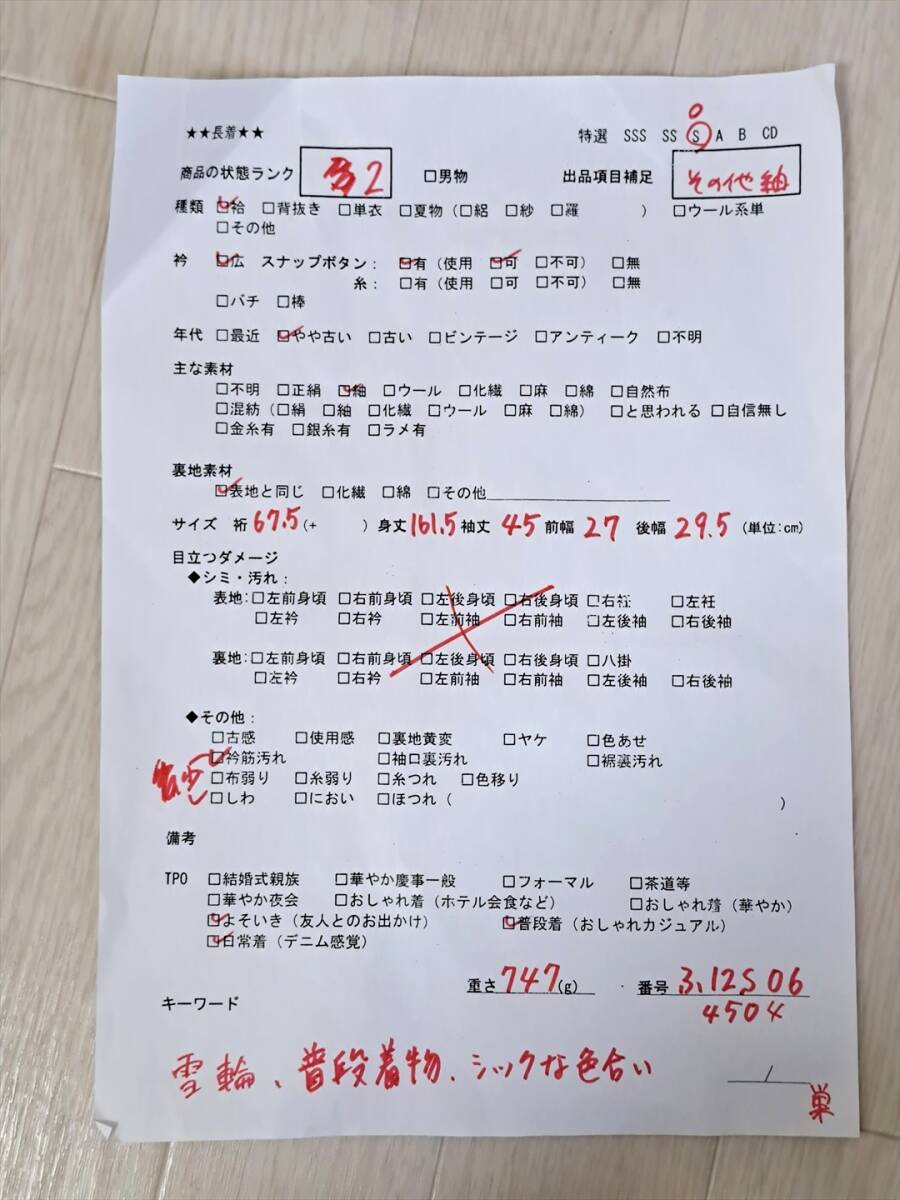 ★★長着★★ 特選 SSS SS S A B CD
商品の状態ランク 2 □男物 出品項目補足 その他紬
種類 □袷 □背抜き □単衣 □夏物（□絽 □紗 □羅 ） □ウール系単
□その他
衿 □広 スナップボタン： □有（使用 □可 □不可） □無
糸：□有（使用 □可 □不可） □無
□バチ □棒
年代 □最近 □やや古い □古い □ビンテージ □アンティーク □不明
主な素材
□不明 □正絹 □紬 □ウール □化繊 □麻 □綿 □自然布
□混紡（□絹 □紬 □化繊 □ウール □麻 □綿） □と思われる □自信無し
□金糸有 □銀糸有 □ラメ有
裏地素材
□表地と同じ □化繊 □綿 □その他
サイズ 裄 67.5（+ ）身丈 161.5 袖丈 45 前幅 27 後幅 29.5（単位:cm）
目立つダメージ
◆シミ・汚れ：
表地：□左前身頃 □右前身頃 □左後身頃 □右後身頃 □右衽 □左衽
□左衿 □右衿 □左前袖 □右前袖 □左後袖 □右後袖
裏地：□左前身頃 □右前身頃 □左後身頃 □右後身頃 □八掛
□左衿 □右衿 □左前袖 □右前袖 □左後袖 □右後袖
◆その他：
□古感 □使用感 □裏地黄変 □ヤケ □色あせ
□衿筋汚れ □袖口裏汚れ □裾裏汚れ
□布弱り □糸弱り □糸つれ □色移り
□しわ □におい □ほつれ（ ）
備考
TPO □結婚式親族 □華やか慶事一般 □フォーマル □茶道等
□華やか夜会 □おしゃれ着（ホテル会食など） □おしゃれ着（華やか）
□よそいき（友人とのお出かけ） □普段着（おしゃれカジュアル）
□日常着（デニム感覚）
重さ 747(g) 番号 3.12S06
4504
キーワード
雪輪、普段着物、シックな色合い